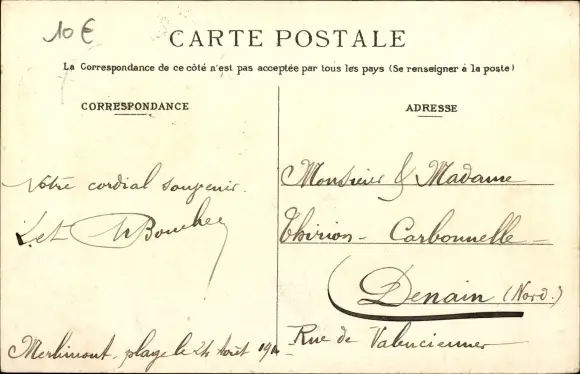 10 €
CARTE POSTALE
La Correspondance de ce côté n'est pas acceptée par tous les pays (Se renseigner à la poste)
CORRESPONDANCE
ADRESSE
Votre cordial souvenir.
L. et M Boucher
Merlimont-plage le 24 Août
Monsieur & Madame
Thirion-Carbonnelle-
Denain (Nord.)
Rue de Valenciennes